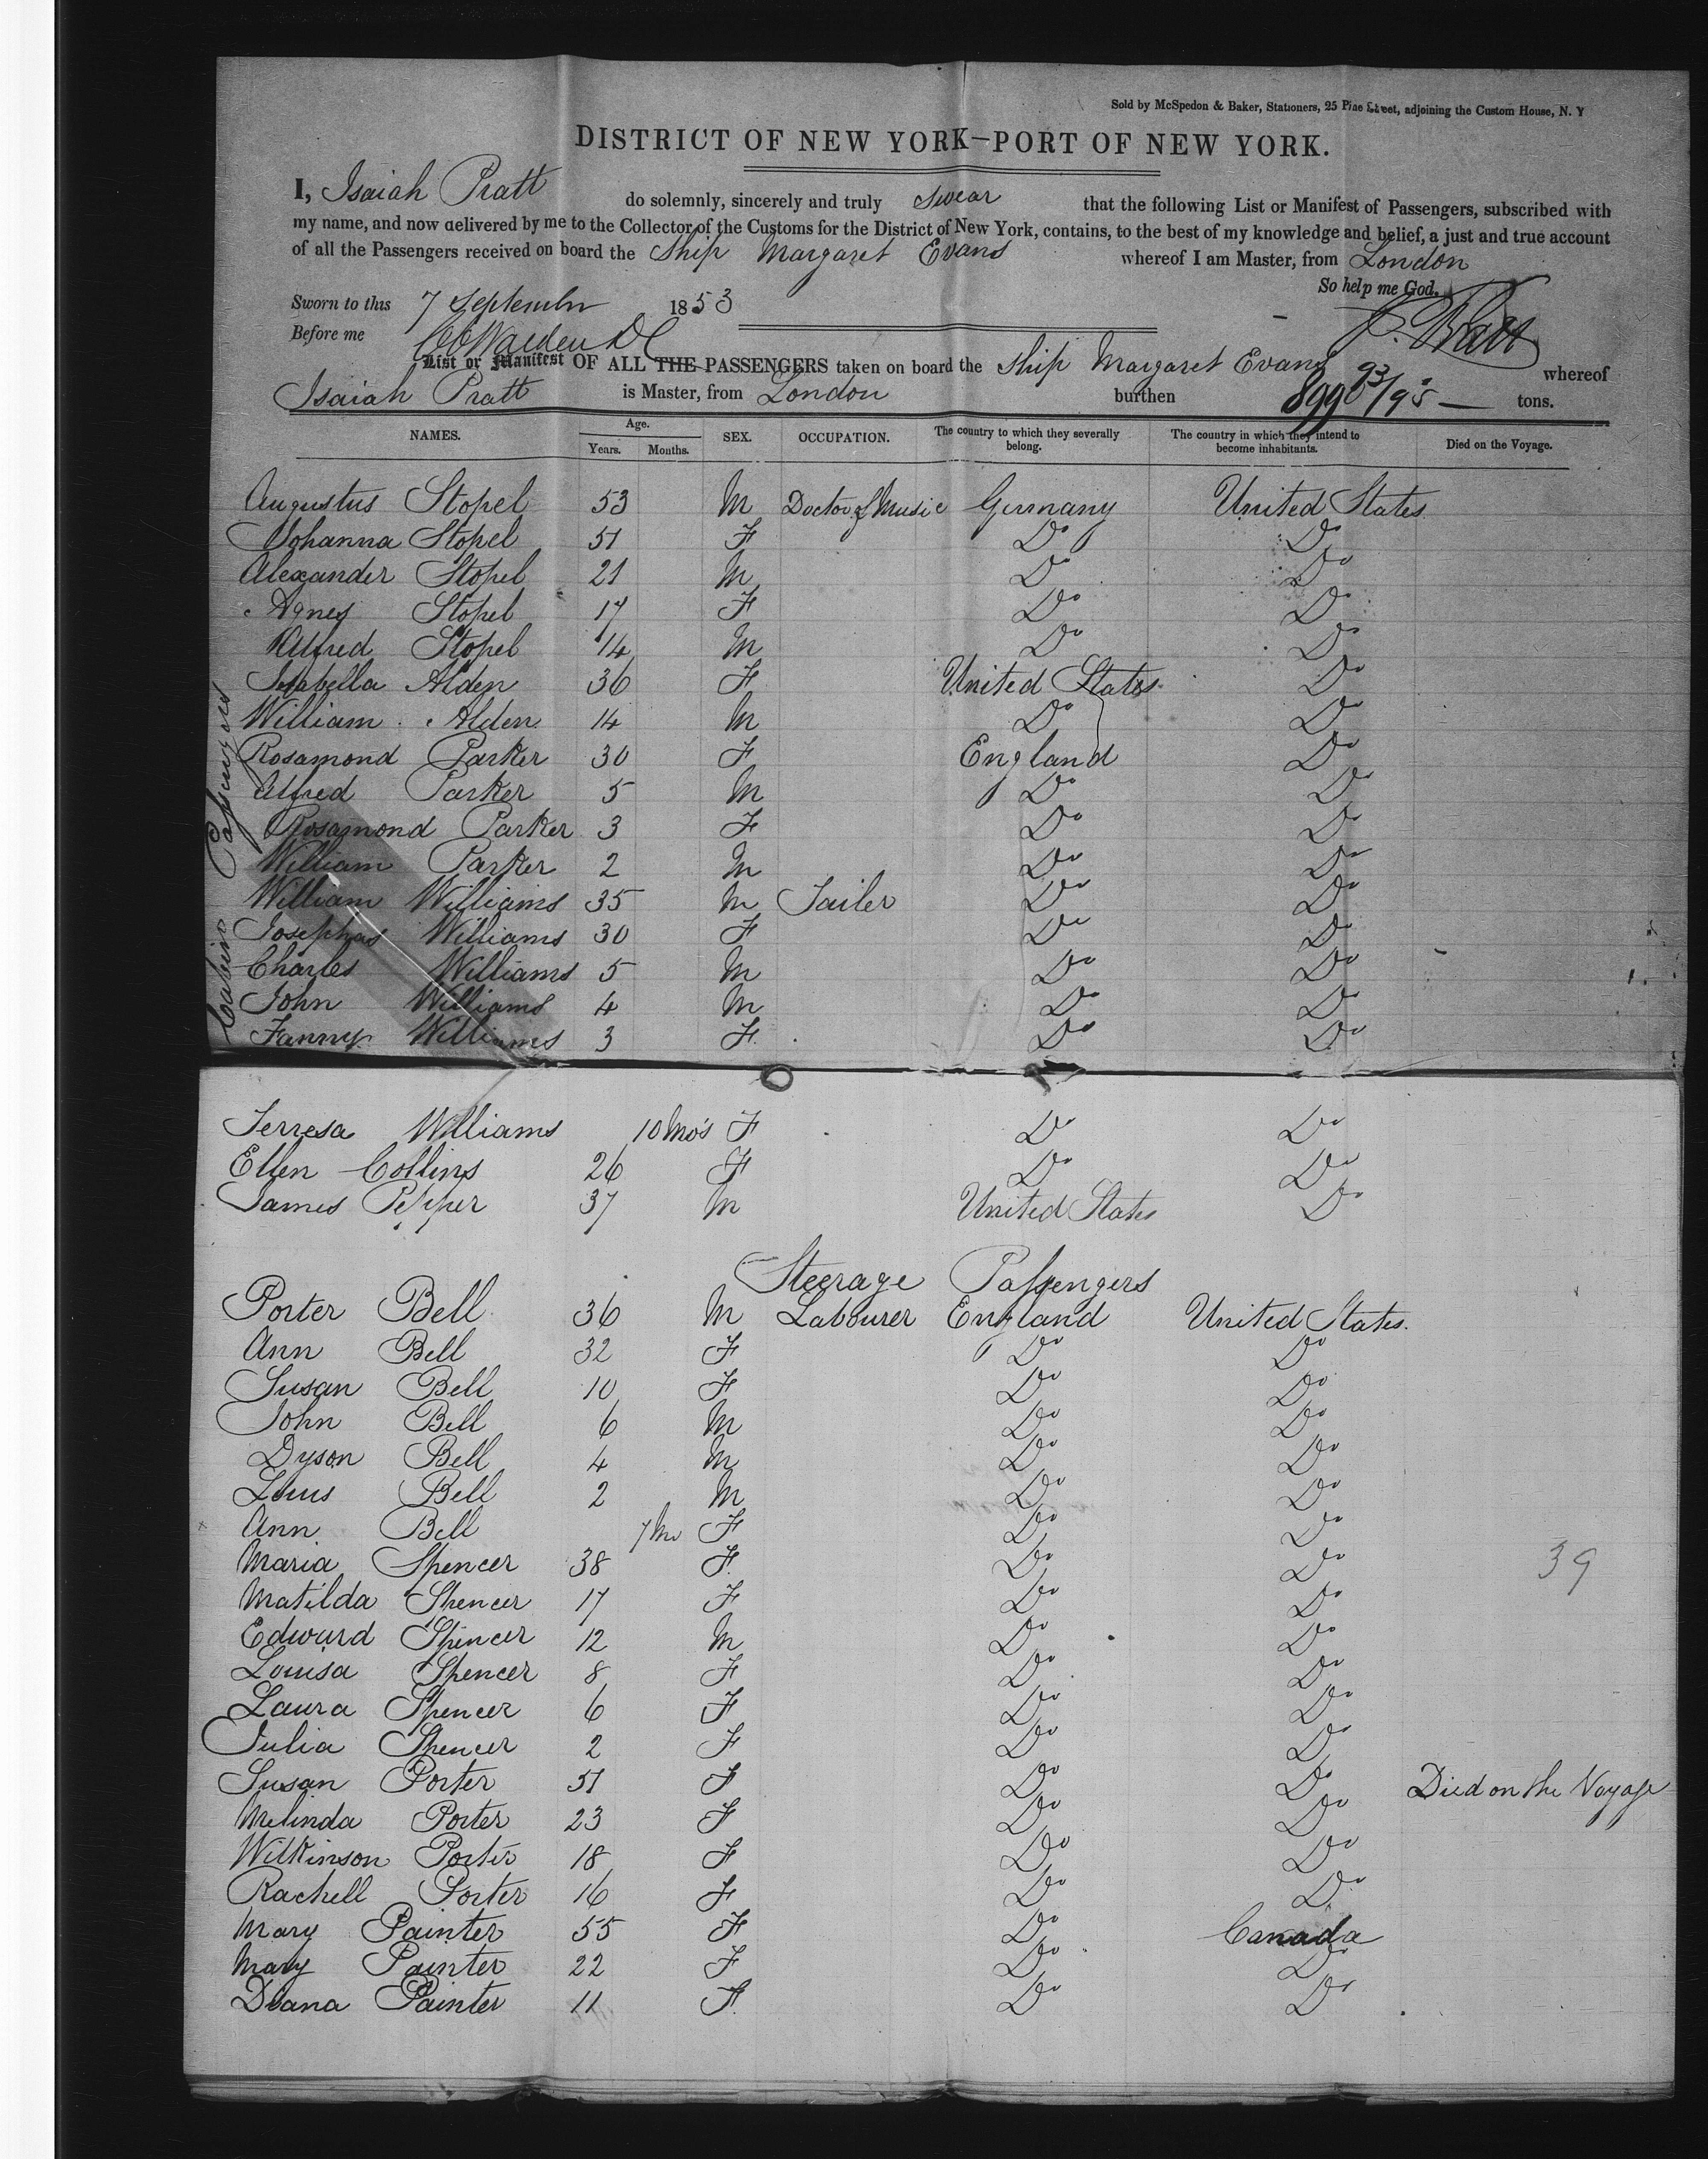 Sold by McSpedon & Baker, Stationers, 25 Pine Street, adjoining the Custom House, N. Y
DISTRICT OF NEW YORK—PORT OF NEW YORK.
I, Isaiah Pratt do solemnly, sincerely and truly Swear that the following List or Manifest of Passengers, subscribed with
my name, and now delivered by me to the Collector of the Customs for the District of New York, contains, to the best of my knowledge and belief, a just and true account
of all the Passengers received on board the Ship Margaret Evans whereof I am Master, from London
So help me God.
Sworn to this 7 September 1853
Before me
I. Pratt
List or Manifest OF ALL THE PASSENGERS taken on board the Ship Margaret Evans whereof
Isaiah Pratt is Master, from London burthen 899 93/95 — tons.
NAMES. Age. Years. Months. SEX. OCCUPATION. The country to which they severally belong. The country in which they intend to become inhabitants. Died on the Voyage.
Cabin Passengers
Augustus Stopel 53 M Doctor of Music Germany United States
Johanna Stopel 51 F Do Do
Alexander Stopel 21 M Do Do
Agnes Stopel 17 F Do Do
Alfred Stopel 14 M Do Do
Isabella Alden 36 F United States Do
William Alden 14 M Do Do
Rosamond Parker 30 F England Do
Alfred Parker 5 M Do Do
Rosamond Parker 3 F Do Do
William Parker 2 M Do Do
William Williams 35 M Tailer Do Do
Josephas Williams 30 F Do Do
Charles Williams 5 M Do Do
John Williams 4 M Do Do
Fanny Williams 3 F Do Do
Terresa Williams 10 Mo's F Do Do
Ellen Collins 26 F Do Do
James Pepper 37 M United States Do
Steerage Passengers
Porter Bell 36 M Labourer England United States.
Ann Bell 32 F Do Do
Susan Bell 10 F Do Do
John Bell 6 M Do Do
Dyson Bell 4 M Do Do
Louis Bell 2 M Do Do
Ann Bell 7 Mo F Do Do
Maria Spencer 38 F Do Do
39
Matilda Spencer 17 F Do Do
Edward Spencer 12 M Do Do
Louisa Spencer 8 F Do Do
Laura Spencer 6 F Do Do
Julia Spencer 2 F Do Do
Susan Porter 51 F Do Do Died on the Voyage
Melinda Porter 23 F Do Do
Wilkinson Porter 18 F Do Do
Rachell Porter 16 F Do Do
Mary Painter 55 F Do Canada
Mary Painter 22 F Do Do
Diana Painter 11 F Do Do